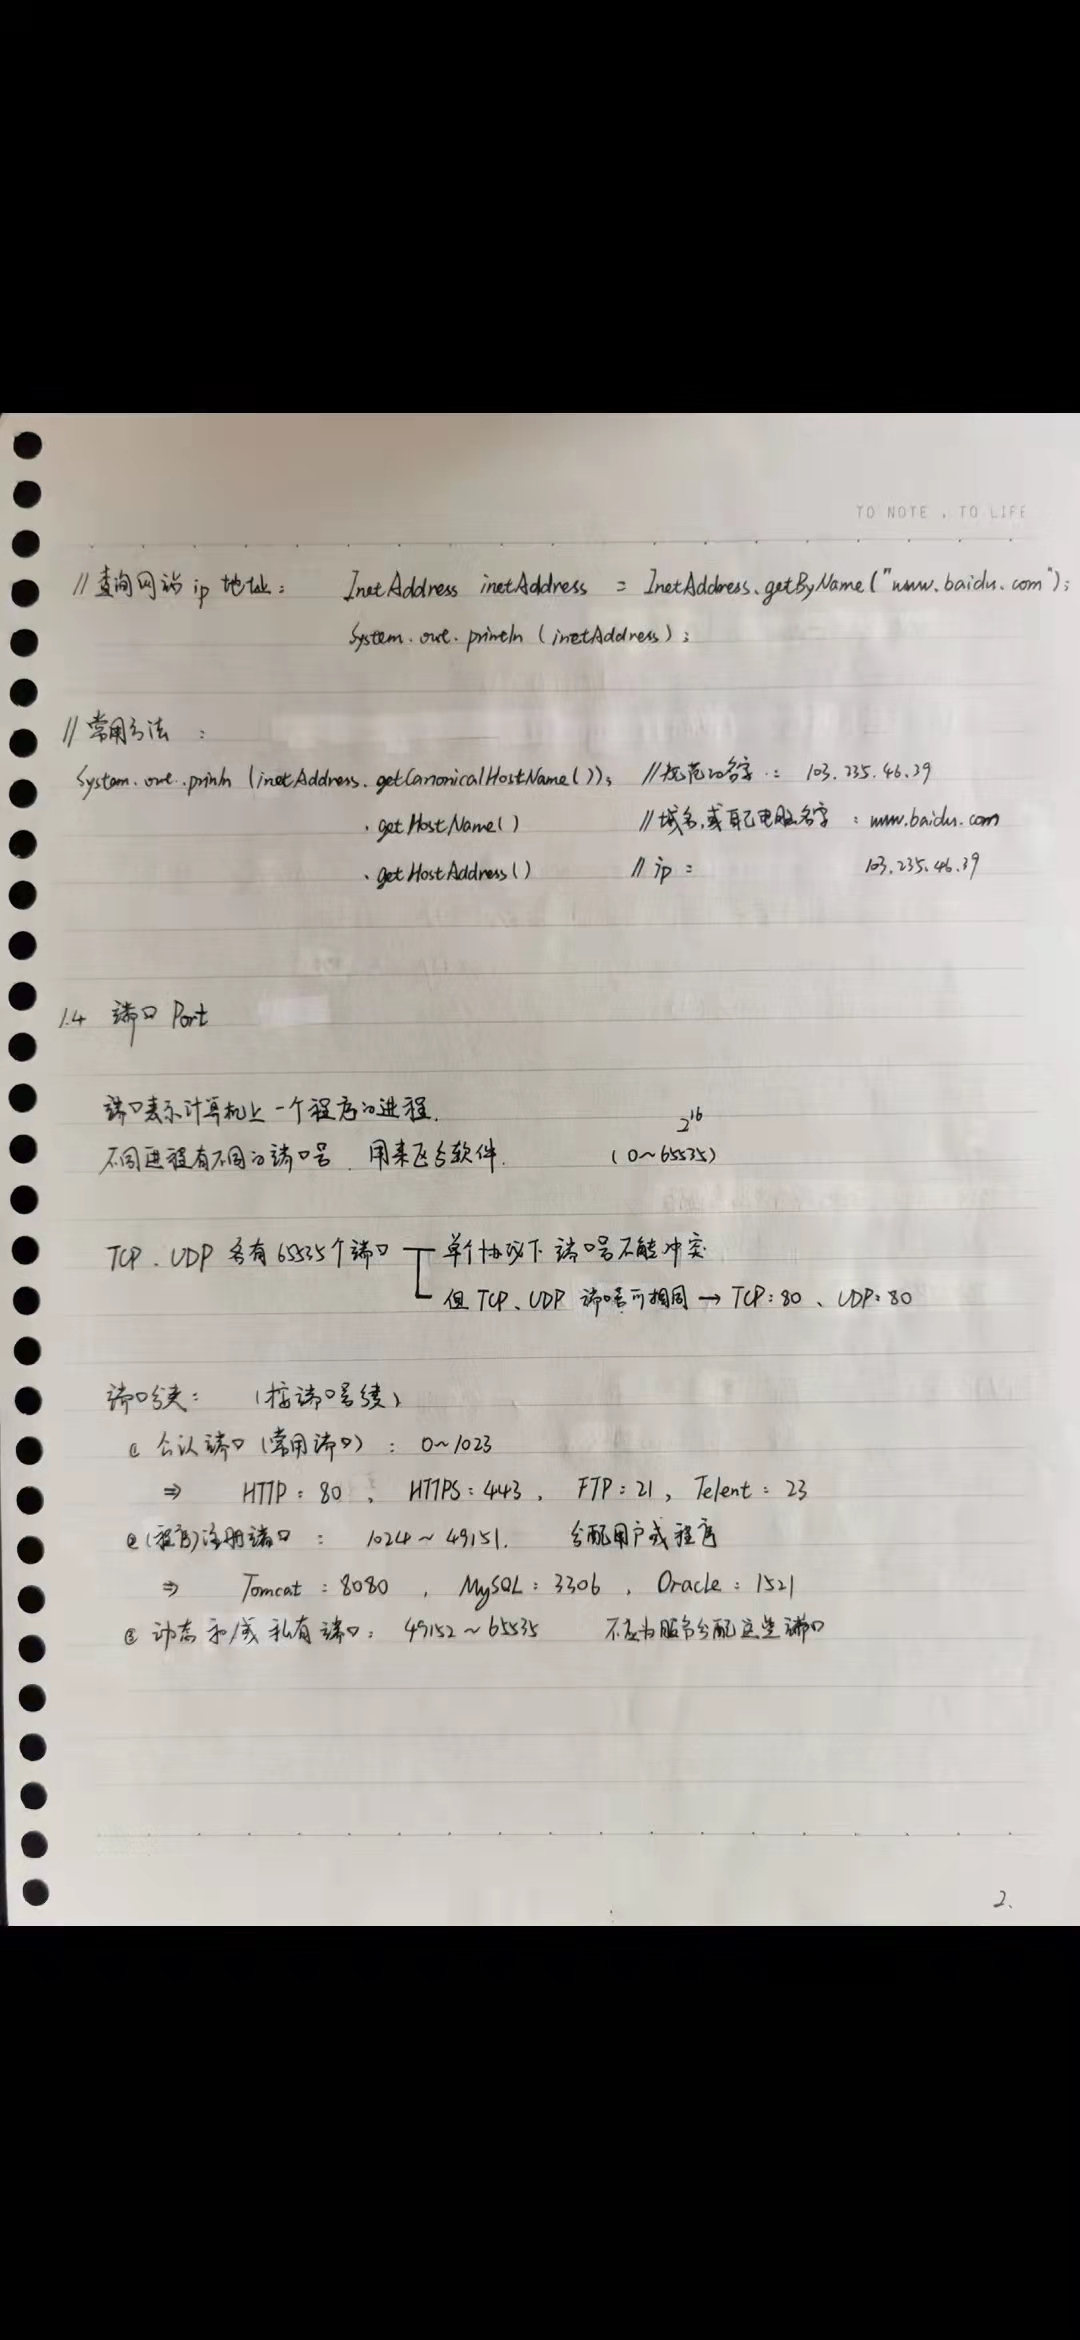 TO NOTE , TO LIFE
// 查询网站 ip 地址： InetAddress inetAddress = InetAddress.getByName("www.baidu.com");
System.out.println (inetAddress);
// 常用方法 ：
System.out.println (inetAddress.getCanonicalHostName()); // 规范的名字 ： 103.235.46.39
.getHostName() // 域名,或自己电脑名字 ： www.baidu.com
.getHostAddress() // ip ： 103.235.46.39
1.4 端口 Port
端口表示计算机上一个程序的进程.
2^16
不同进程有不同的端口号 . 用来区分软件. (0~65535)
TCP 、UDP 各有 65535个端口 单个协议下 端口号不能冲突
但 TCP、UDP 端口号可相同 → TCP:80 、UDP:80
端口分类： (按端口号类)
① 公认端口 (常用端口) ： 0~1023
⇒ HTTP : 80 , HTTPS : 443 , FTP : 21 , Telent : 23
② (程序)注册端口 ： 1024 ~ 49151. 分配用户或程序
⇒ Tomcat : 8080 , MySQL : 3306 , Oracle : 1521
③ 动态 和/或 私有 端口： 49152 ~ 65535 不应为服务分配这些端口
2、